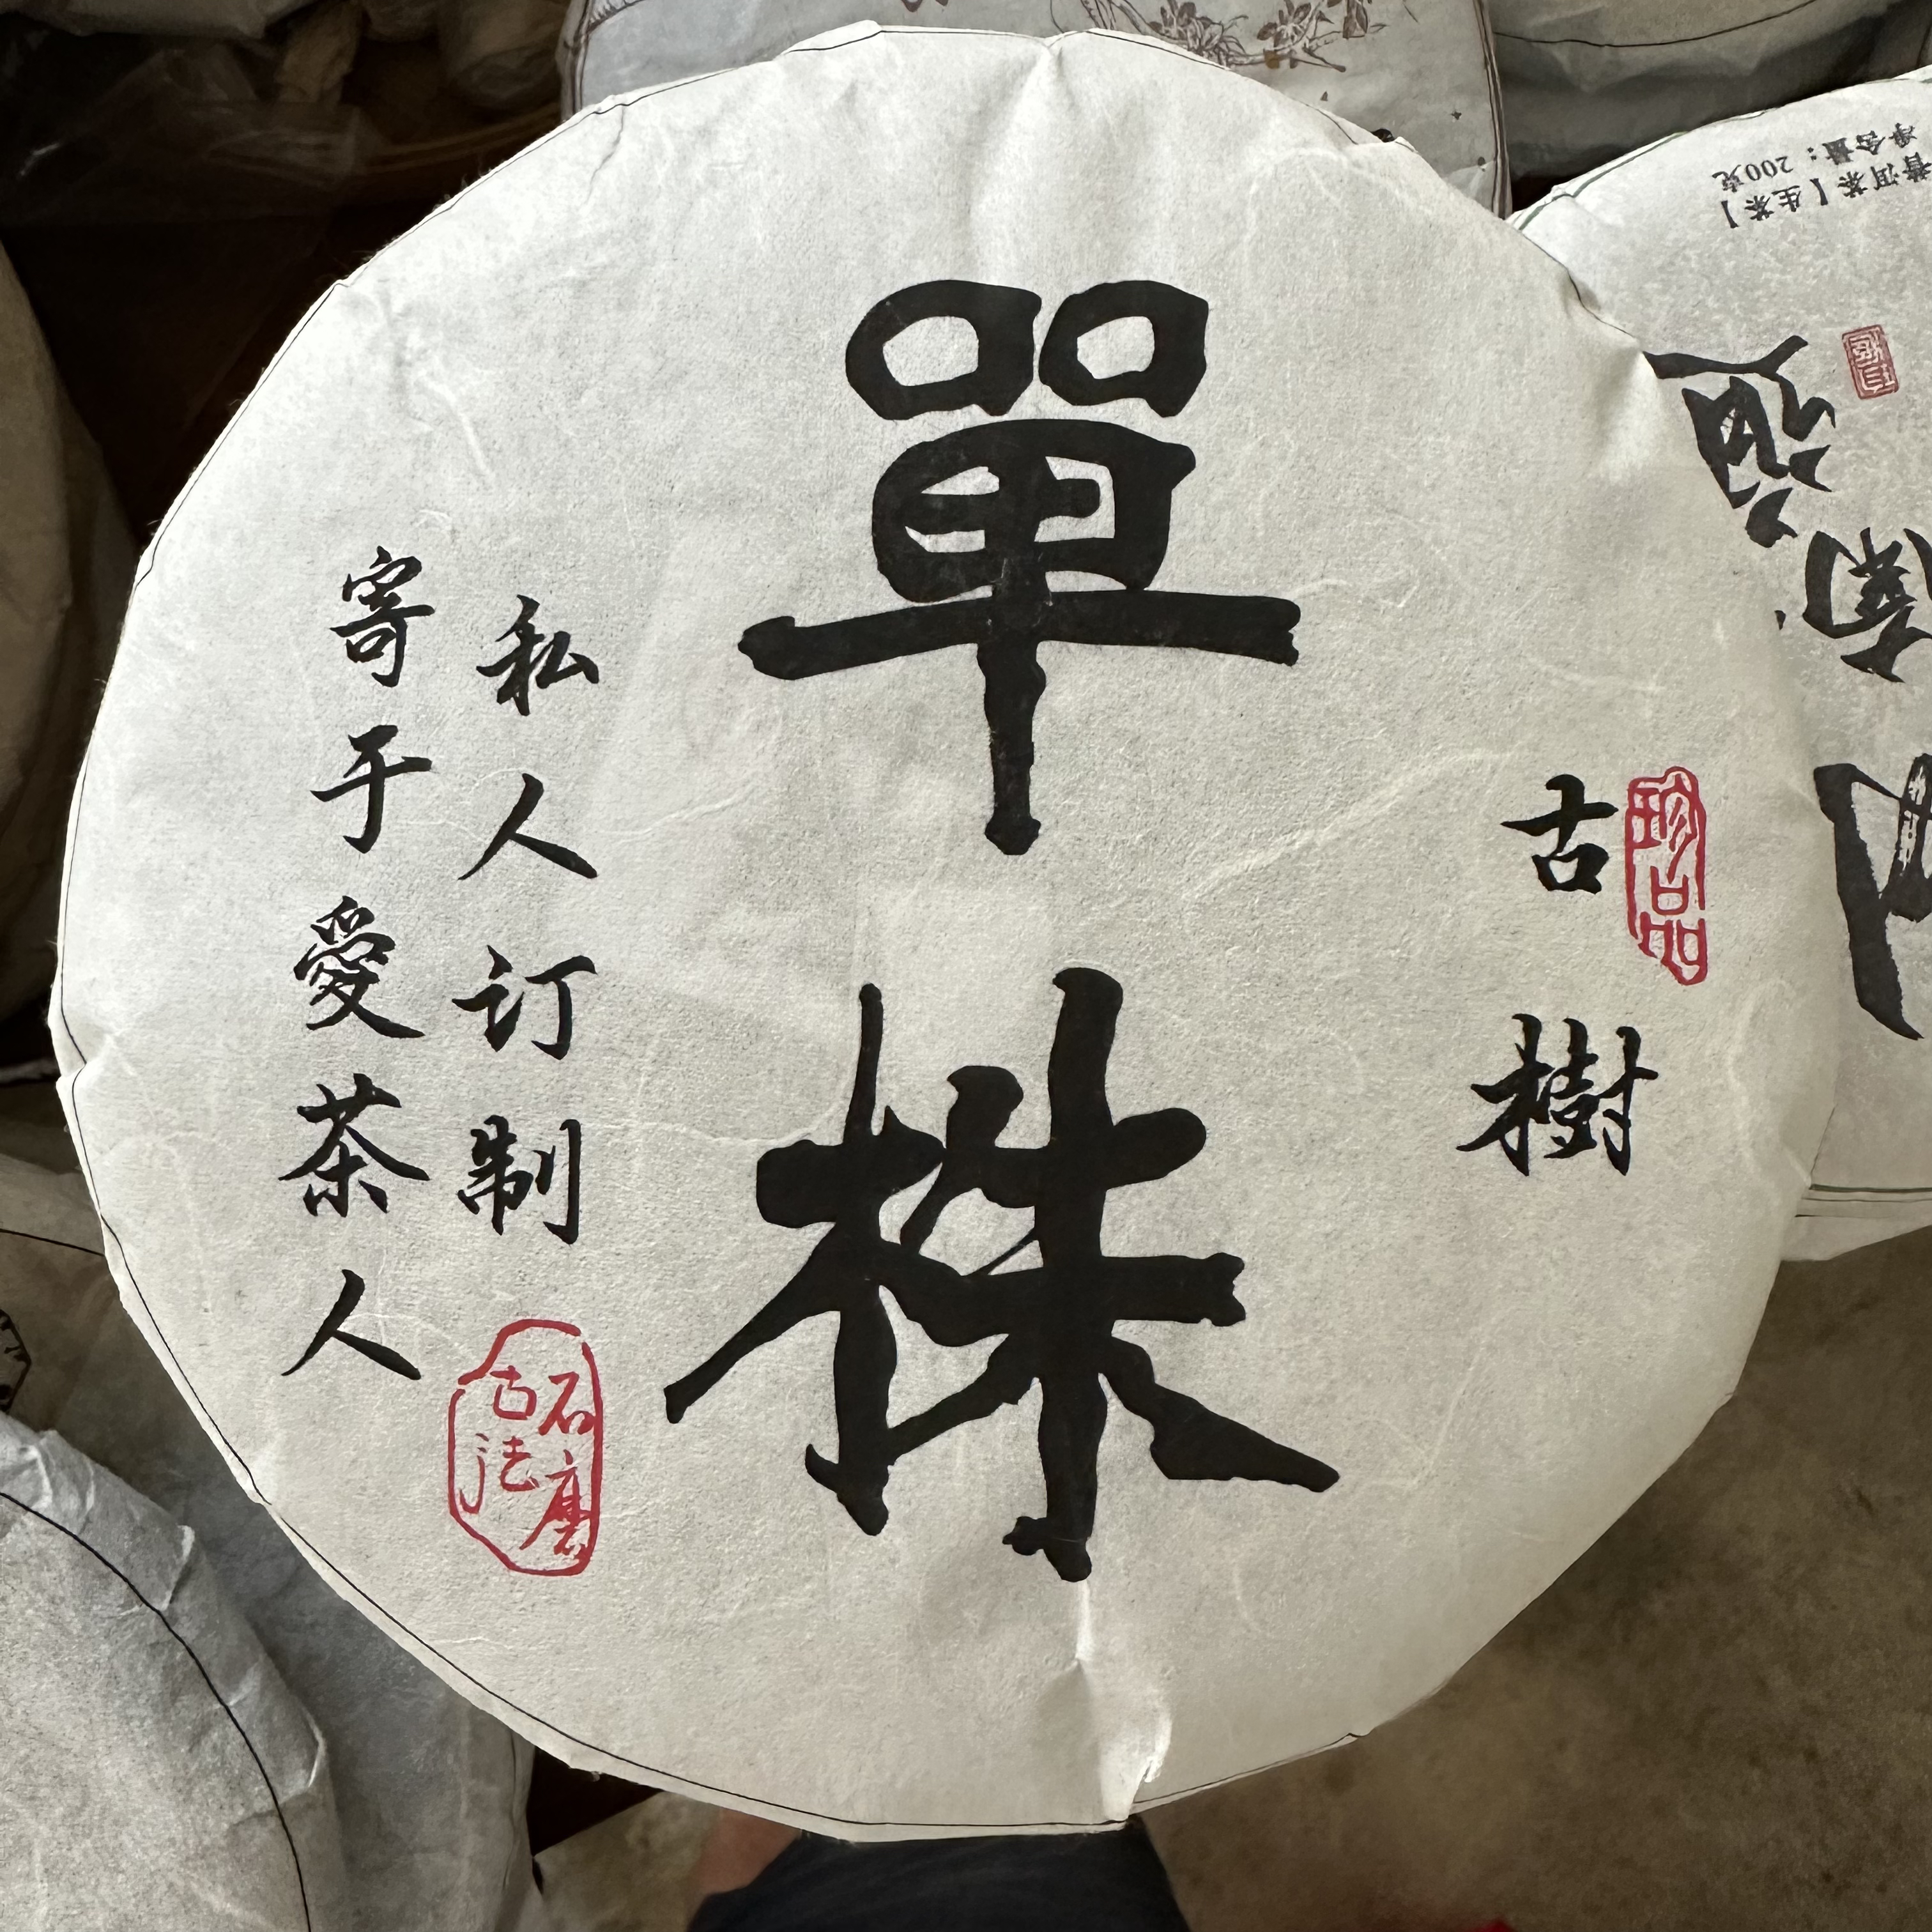 單株
古樹
珍品
私人订制
寄于愛茶人
石磨
古法
普洱茶【生茶】
净含量：200克